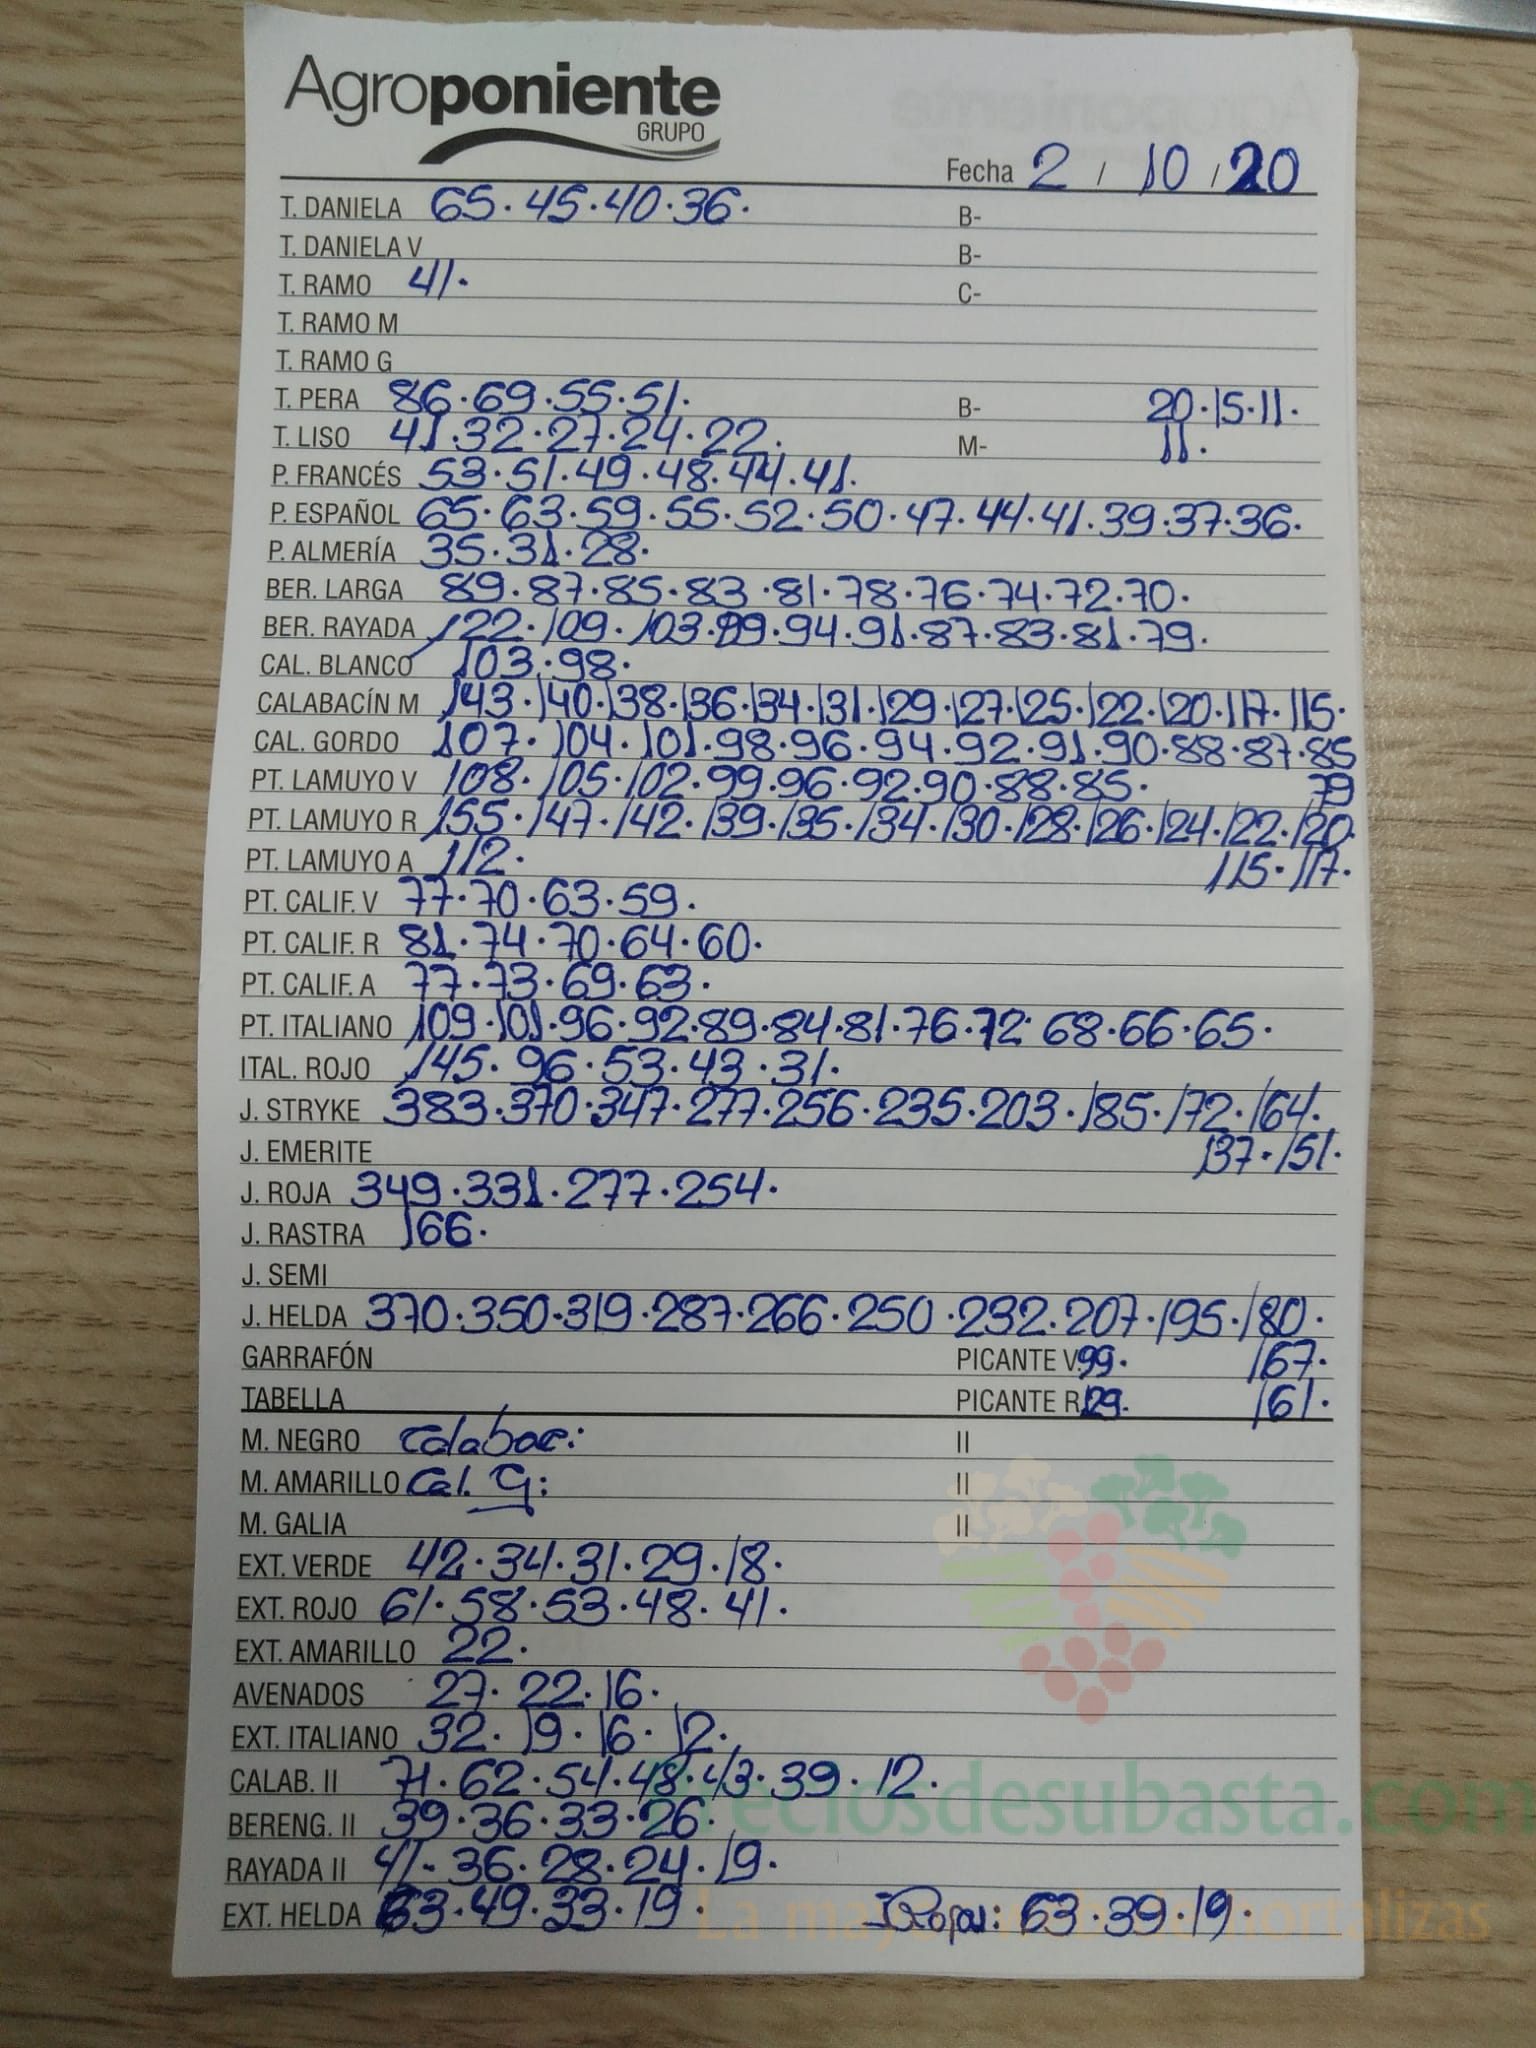 Agroponiente
GRUPO
Fecha 2 / 10 / 20
T. DANIELA 65·45·40·36· B-
T. DANIELA V B-
T. RAMO 41· C-
T. RAMO M
T. RAMO G
T. PERA 86·69·55·51· B- 20·15·11·
T. LISO 41·32·27·24·22· M- 11·
P. FRANCÉS 53·51·49·48·44·41·
P. ESPAÑOL 65·63·59·55·52·50·47·44·41·39·37·36·
P. ALMERÍA 35·31·28·
BER. LARGA 89·87·85·83·81·78·76·74·72·70·
BER. RAYADA 122·109·103·99·94·91·87·83·81·79·
CAL. BLANCO 103·98·
CALABACÍN M 143·140·138·136·134·131·129·127·125·122·120·117·115·
CAL. GORDO 107·104·101·98·96·94·92·91·90·88·87·85
PT. LAMUYO V 108·105·102·99·96·92·90·88·85· 79
PT. LAMUYO R 155·147·142·139·135·134·130·128·126·124·122·120·
PT. LAMUYO A 112· 115·117·
PT. CALIF. V 77·70·63·59·
PT. CALIF. R 81·74·70·64·60·
PT. CALIF. A 77·73·69·63·
PT. ITALIANO 109·101·96·92·89·84·81·76·72·68·66·65·
ITAL. ROJO 145·96·53·43·31·
J. STRYKE 383·370·347·277·256·235·203·185·172·164·
J. EMERITE 137·151·
J. ROJA 349·331·277·254·
J. RASTRA 166·
J. SEMI
J. HELDA 370·350·319·287·266·250·232·207·195·180·
GARRAFÓN PICANTE V. 99· 167·
TABELLA PICANTE R 129· 161·
M. NEGRO Calabac: II
M. AMARILLO Cal. G: II
M. GALIA II
EXT. VERDE 42·34·31·29·18·
EXT. ROJO 61·58·53·48·41·
EXT. AMARILLO 22·
AVENADOS 27·22·16·
EXT. ITALIANO 32·19·16·12·
CALAB. II 71·62·54·48·43·39·12·
preciosdesubasta.com
BERENG. II 39·36·33·26·
RAYADA II 41·36·28·24·19·
EXT. HELDA 63·49·33·19· Rojas: 63·39·19·
La mayor hortalizas